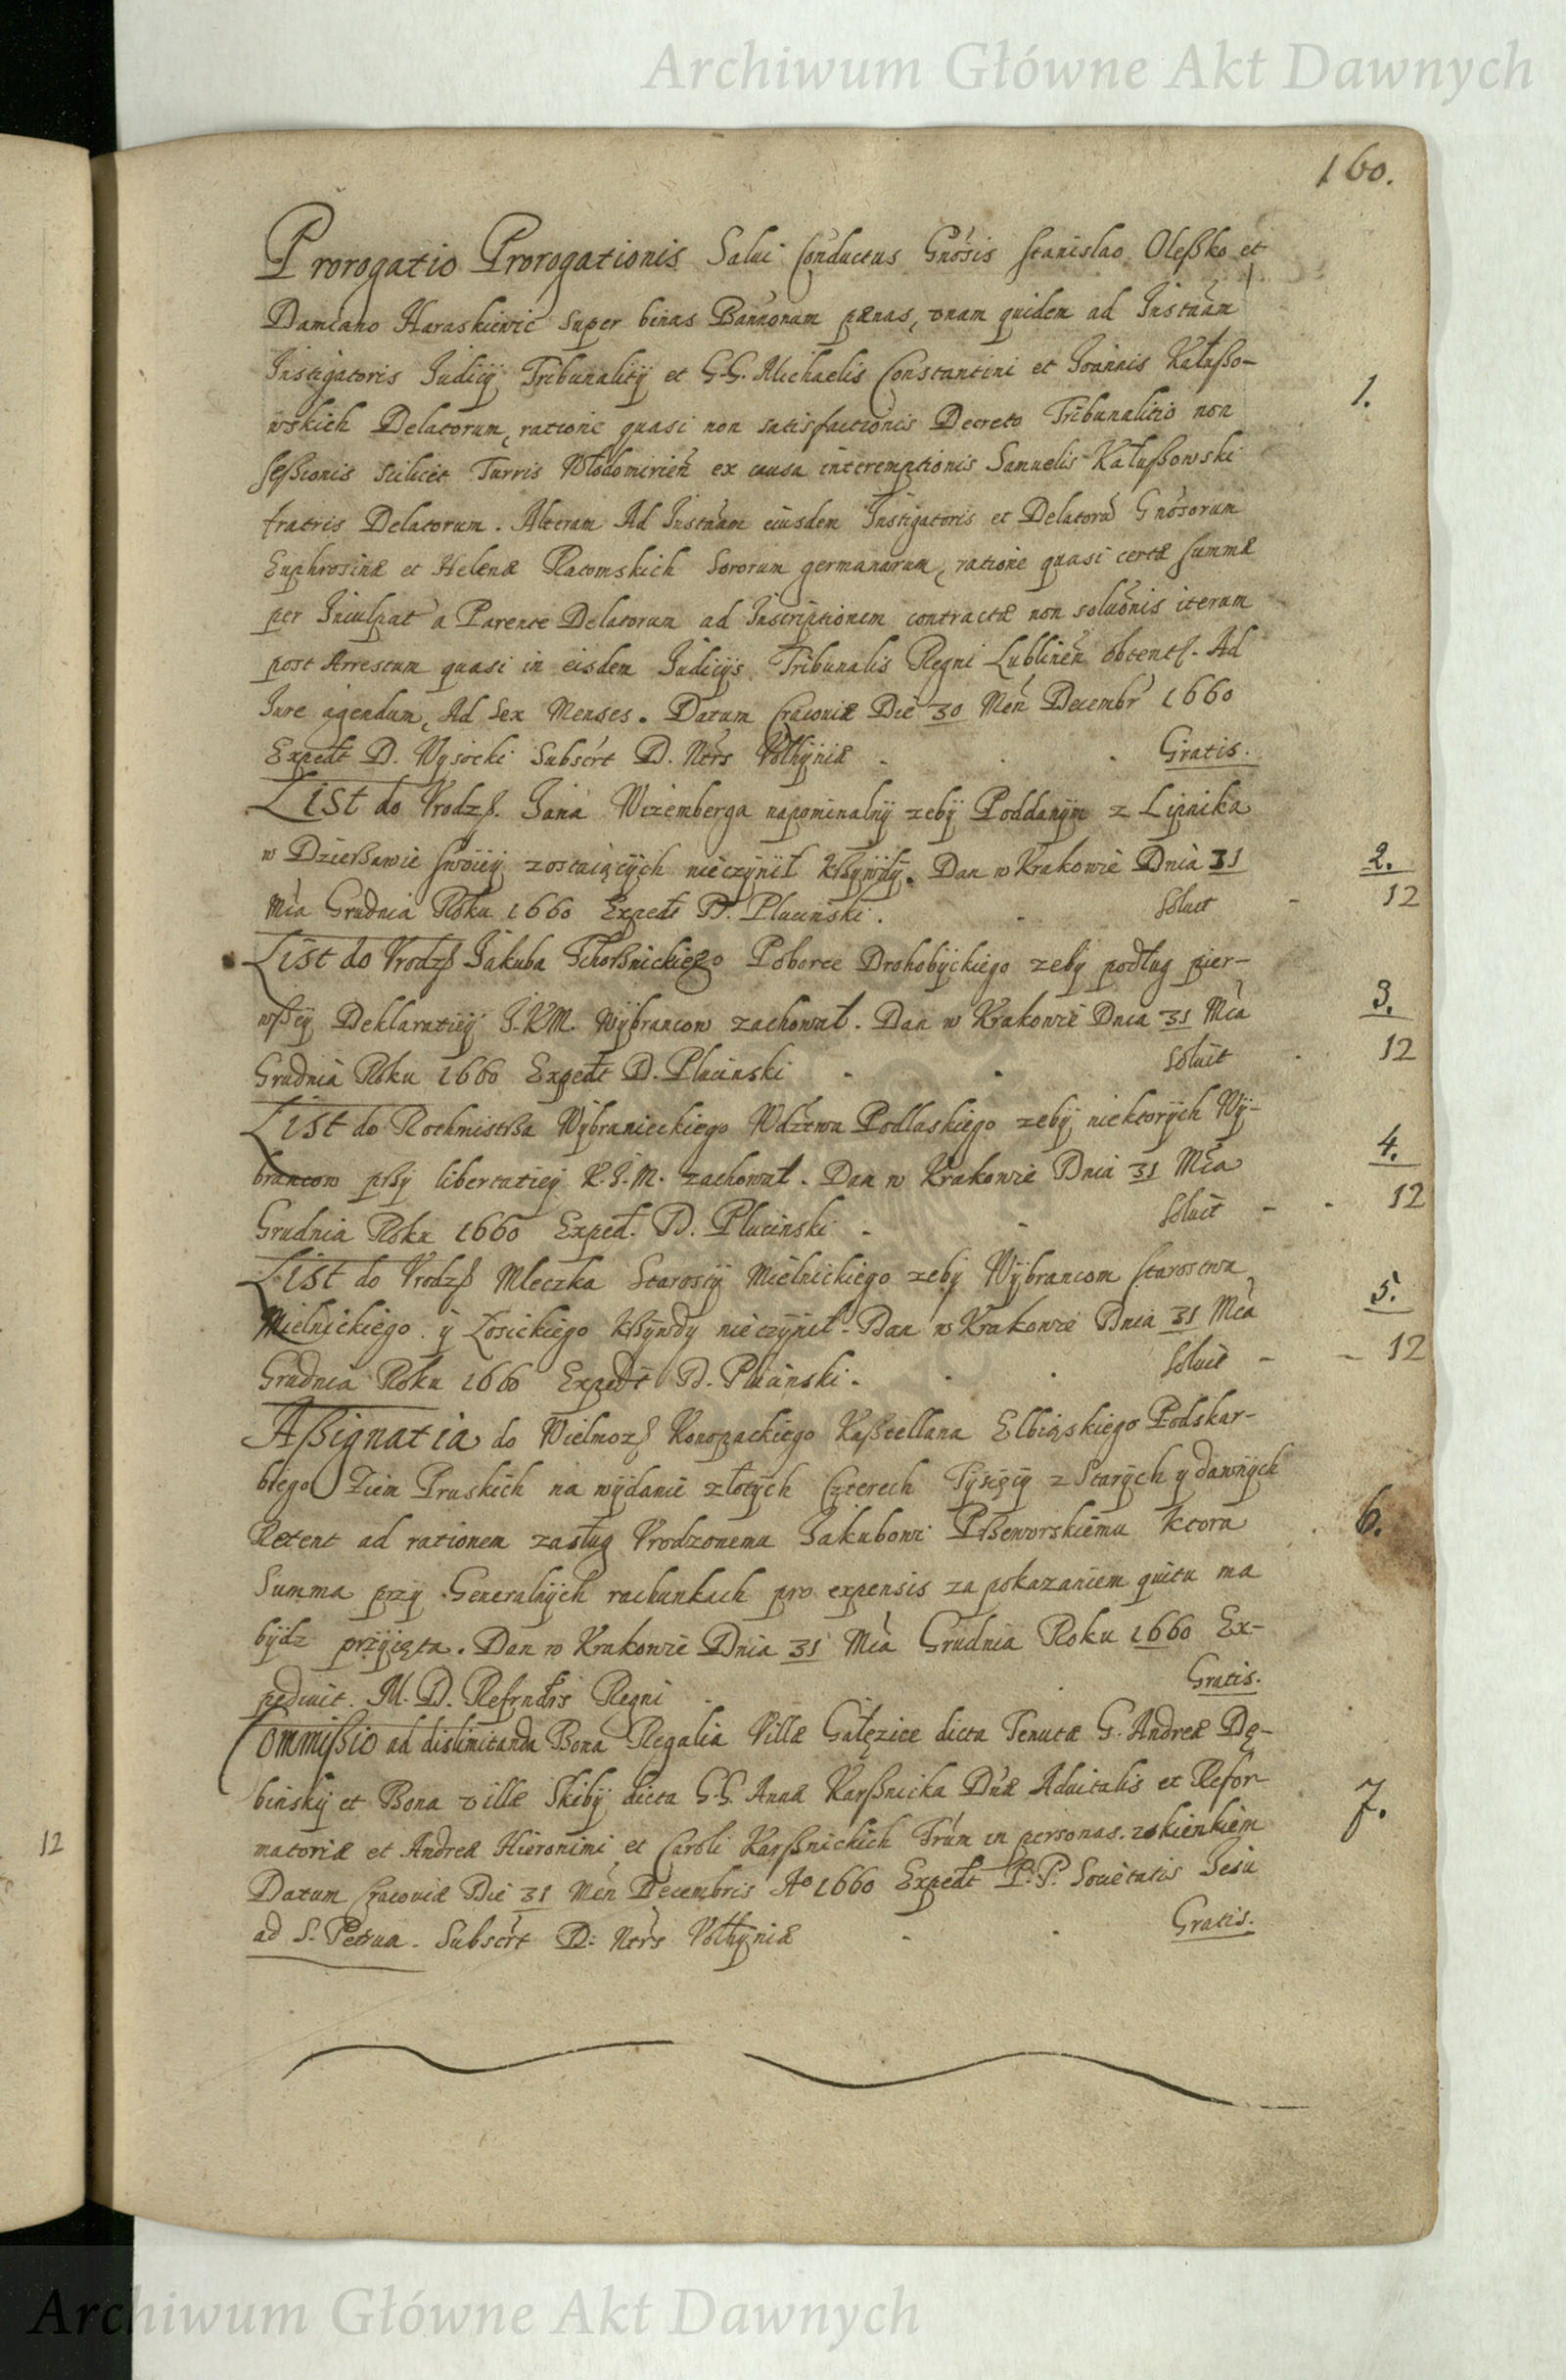 Archiwum Główne Akt Dawnych
160.
Prorogatio Prorogationis Salui Conductus Gnosis Stanislao Oleßko et
Damiano Haraskiewic super binas Bannonum pænas, vnam quidem ad Instnam
Instigatoris Judicij Tribunalitij et G.G. Michaelis Constantini et Joannis Kałußo-
wskich Delatorum, ratione quasi non satisfactionis Decreto Tribunalitio non
seßionis scilicet Turris Włodomirien ex causa interemptionis Samuelis Kałußowski
fratris Delatorum. Alteram Ad Instnam eiusdem Instigatoris et Delatoru Gnosorum
Euphrosinæ et Helenæ Ratomskich Sororum germanarum, ratione quasi certæ summæ
per Inculpat a Parente Delatorum ad Inscriptionem contractæ non soluonis iterum
post Arrestum quasi in eisdem Judicijs Tribunalis Regni Lublinen obtent. Ad
Jure agendum, Ad Sex Menses. Datum Cracouiæ Die 30 Men Decembr 1660
Expedt D. Wysocki Subscrt D. Ntrs Vołhyniæ - Gratis.
1.
List do Vrodz. Jana Wizemberga napominalny zeby Poddanym z Lipnika
w Dzierßawie swoiey zostaiących nieczynił kßywdy. Dan w Krakowie Dnia 31
Mca Grudnia Roku 1660 Expedt D. Plucinski. Soluit - 12
2.
List do Vrodz Jakuba Tchorßnickiego Poborce Drohobyckiego zeby podług pier-
wßey Deklaratiey J.K.M. Wybrancow zachował. Dan w Krakowie Dnia 31 Mca
Grudnia Roku 1660 Expedt D. Plucinski Soluit - 12
3.
List do Rothmistßa Wybranieckiego Wdztwa Podlaskiego zeby niektorych Wy-
brancow pßy libertatiey K.J.M. zachował. Dan w Krakowie Dnia 31 Mca
Grudnia Roku 1660 Exped. D. Plucinski - Soluit - - 12
4.
List do Vrodz Mleczka Starosty Mielnickiego zeby Wybrancom starostwa
Mielnickiego y Łosickiego kßywdy nieczynił. Dan w Krakowie Dnia 31 Mca
Grudnia Roku 1660 Expedt D. Plucinski. Soluit - - 12
5.
Aßignatia do Wielmoz Konopackiego Kaßtellana Elbiąskiego Podskar-
biego Ziem Pruskich na wydanie złotych Czterech Tysięcy z Starych y dawnych
Retent ad rationem zasług Vrodzonemu Jakubowi Pßeworskiemu ktora
Summa przy Generalnych rachunkach pro expensis za pokazaniem quitu ma
bydz przyięta. Dan w Krakowie Dnia 31 Mca Grudnia Roku 1660 Ex-
pediuit. M. D. Refrndrs Regni Gratis.
6.
Commißio ad dislimitanda Bona Regalia Villæ Gałęzice dicta Tenutæ G. Andreæ Dę-
binsky et Bona villæ Skiby dicta G.G. Annæ Karßnicka Dnæ Aduitalis et Refor-
matoriæ et Andreæ Hieronimi et Caroli Karßnickich Frum in personas. zokienkiem
Datum Cracouiæ Die 31 Men Decembris Ao 1660 Expedt P.P. Societatis Jesu
ad S. Petrum. Subscrt D. Ntrs Vołhyniæ Gratis.
7.
12
Archiwum Główne Akt Dawnych